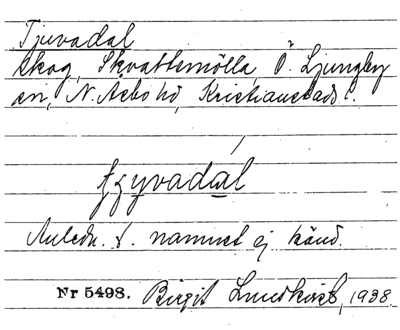 Tjuvadal
skog, Skvattemölla, Ö. Ljungby
sn, N. Åsbo hd, Kristianstads l.
Anledn. t. namnet ej känd.
Nr 5498. Birgit Lundkvist, 1938.